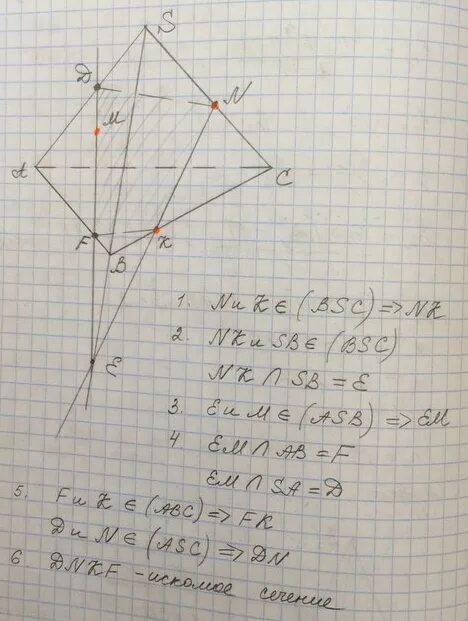 S
D
N
M
A
C
F
K
B
E
1. N и K ∈ (BSC) => NK
2. NK и SB ∈ (BSC)
NK ∩ SB = E
3. E и M ∈ (ASB) => EM
4 EM ∩ AB = F
EM ∩ SA = D
5. F и K ∈ (ABC) => FK
D и N ∈ (ASC) => DN
6 DNKF - искомое сечение